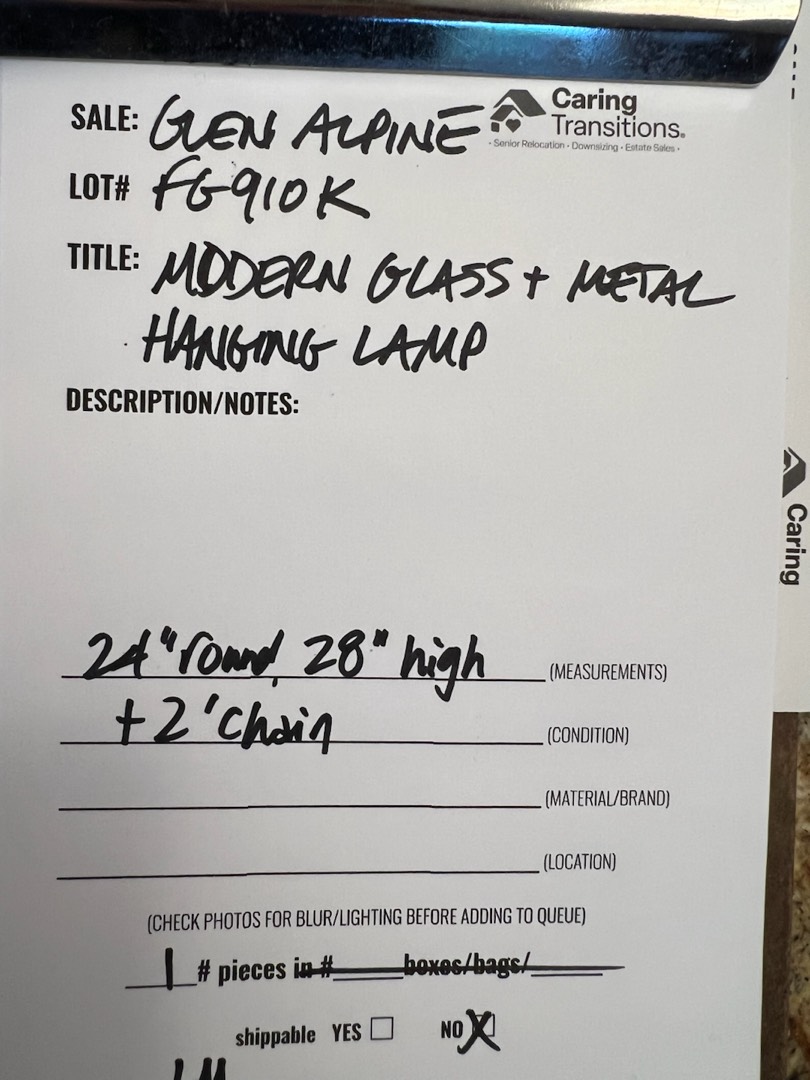 SALE: GLEN ALPINE
Caring
Transitions.
• Senior Relocation • Downsizing • Estate Sales •
LOT# FG910K
TITLE: MODERN GLASS + METAL
HANGING LAMP
DESCRIPTION/NOTES:
24" round, 28" high (MEASUREMENTS)
+ 2' Chain (CONDITION)
(MATERIAL/BRAND)
(LOCATION)
(CHECK PHOTOS FOR BLUR/LIGHTING BEFORE ADDING TO QUEUE)
1 # pieces in #____boxes/bags/____
shippable YES ☐ NO ☒
Caring